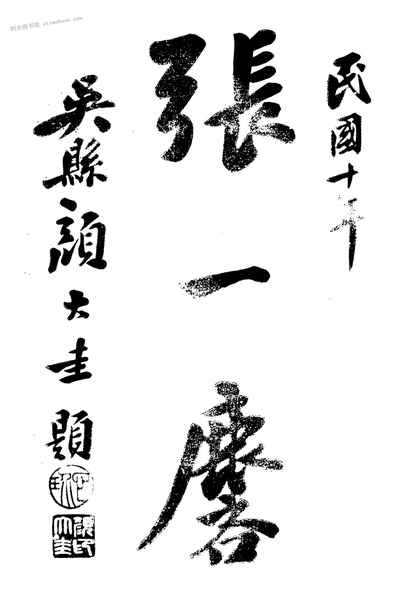 民國十年
張一麐
吳縣顏大圭題